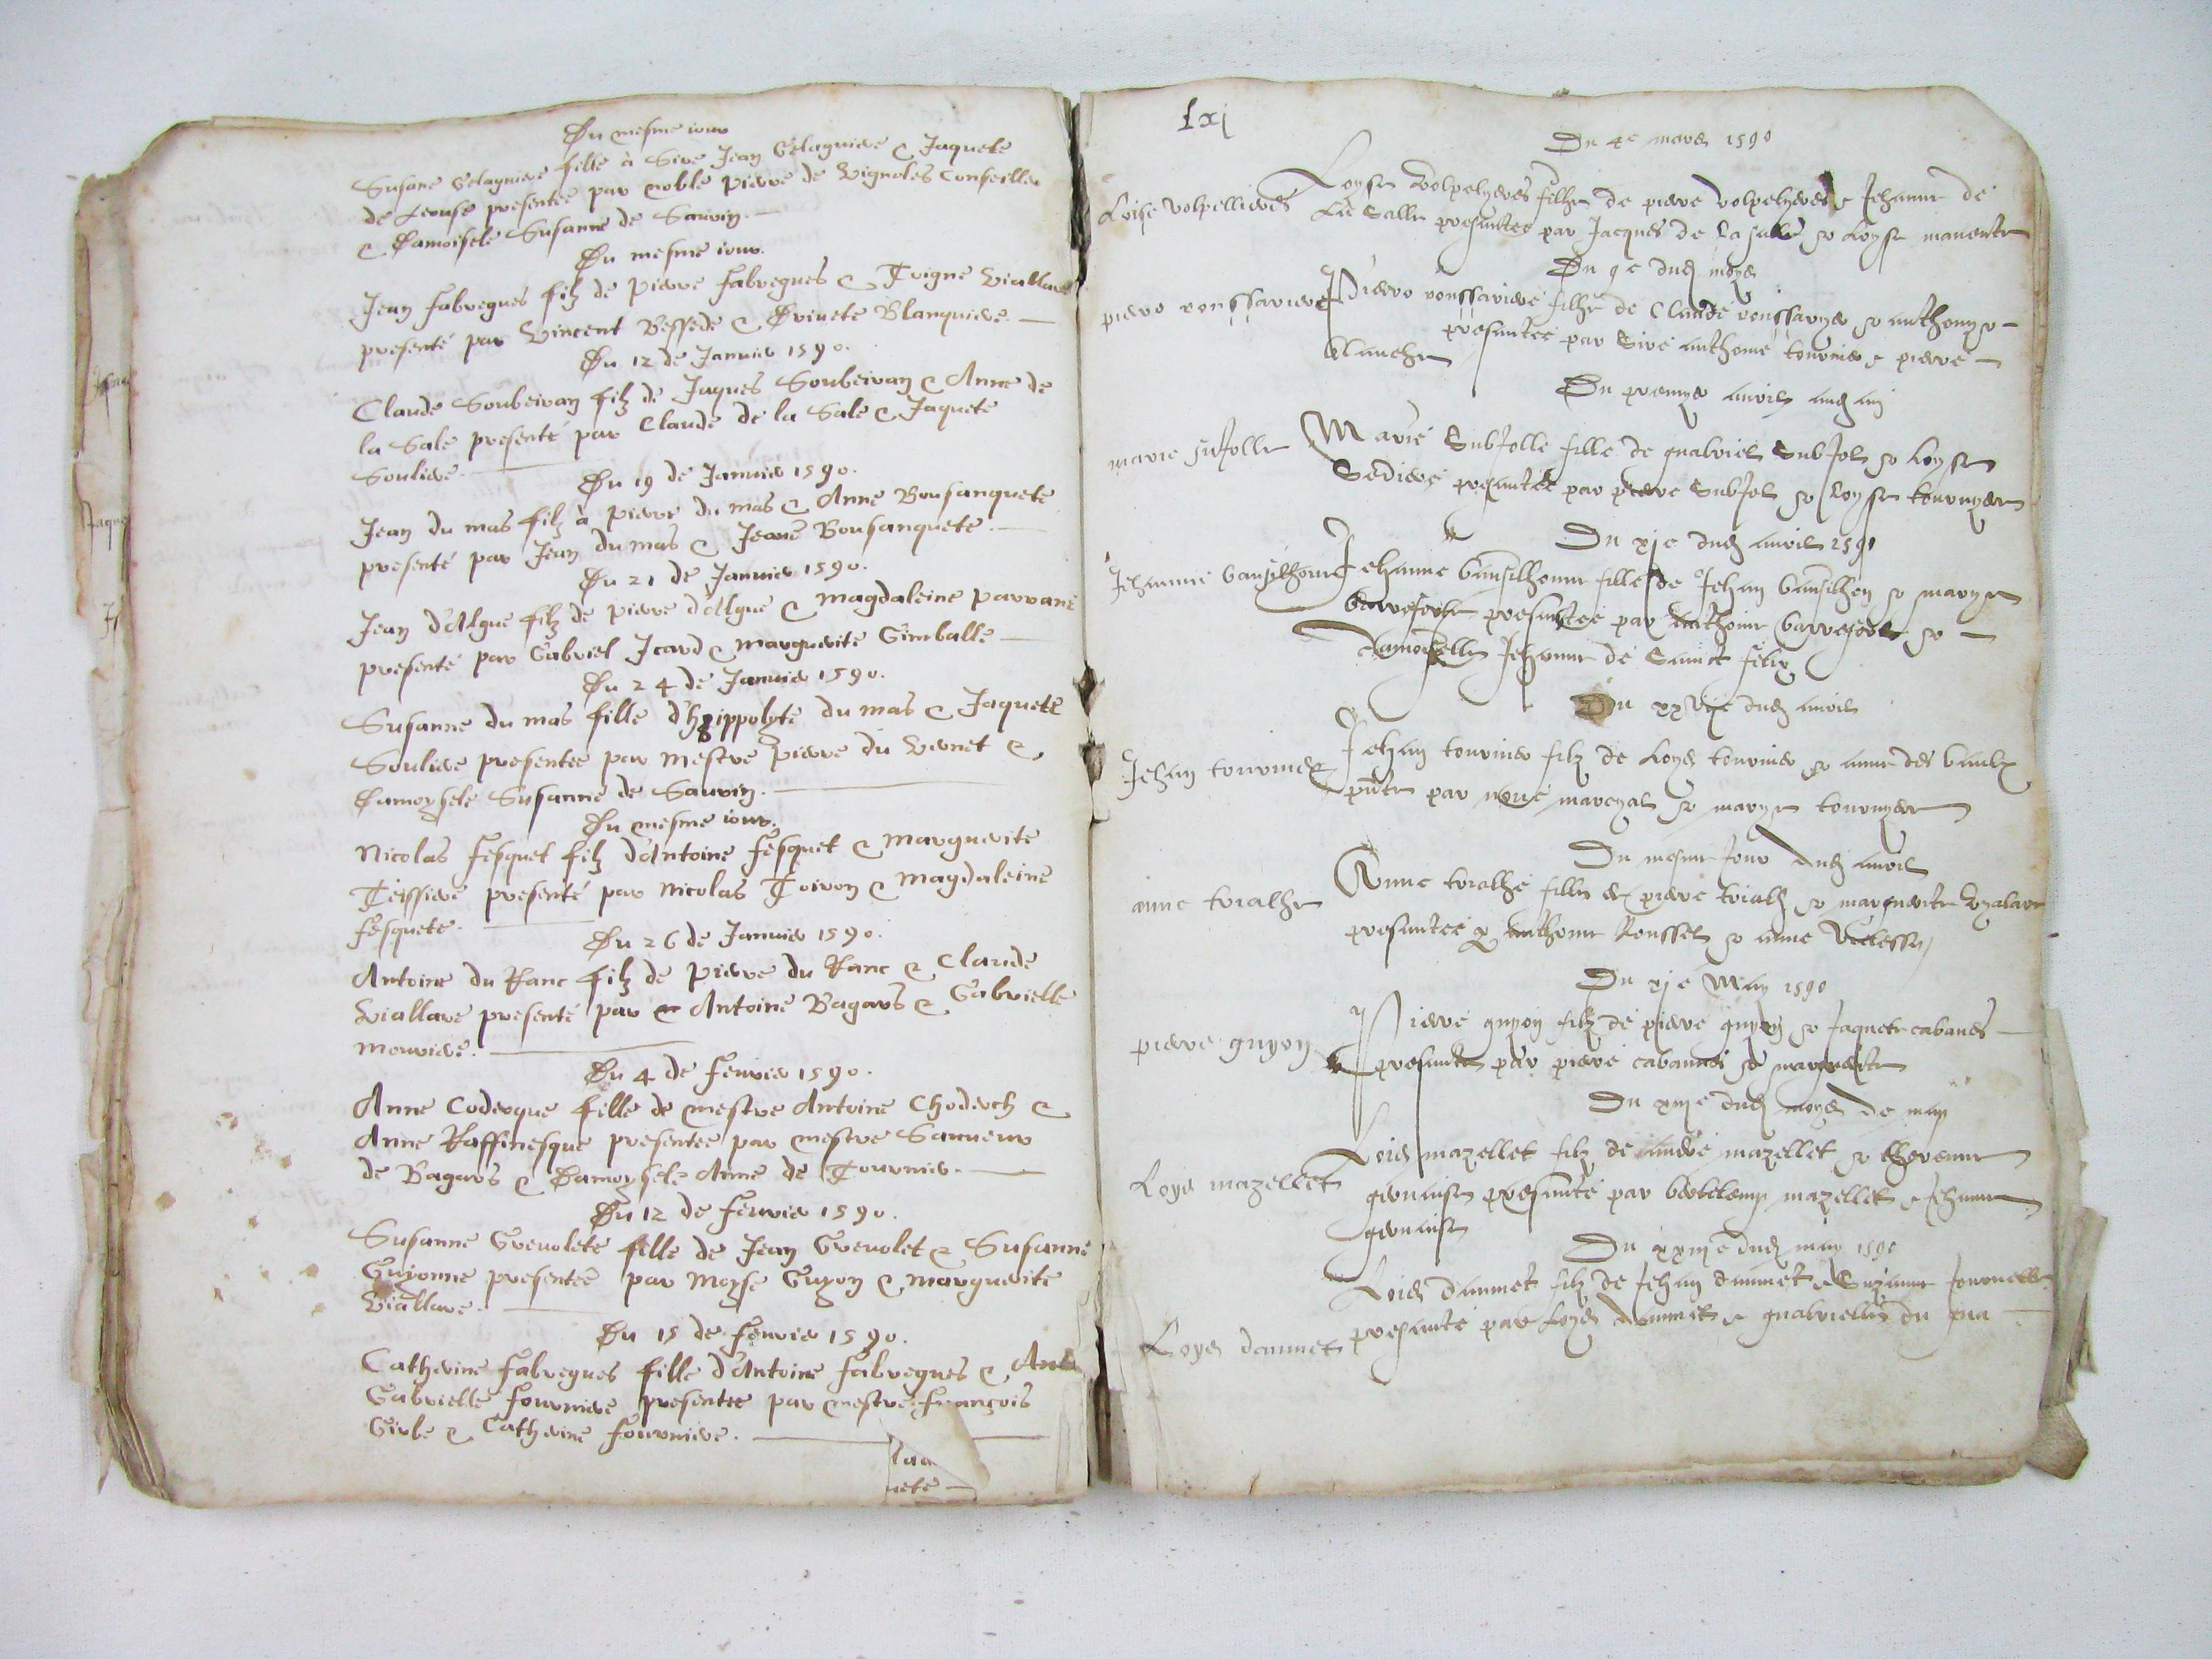 Du mesme iour
Susane Gelagniere fille à Sire Jean Gelagniere & Jaquete
de Leouse presentée par noble pierre de Vignoles Conseiller
& Damoisele Susanne de Sauvin.
Du mesme iour.
Jean Fabregues filz de Pierre Fabregues & Toigne Viallare
presenté par Vincent Bessede & Brinete Blanquiere.
Du 12 de Januier 1590.
Claude Soubeiran filz de Jaques Soubeiran & Anne de
la Sale presenté par Claude de la Sale & Jaquete
Souliere.
Du 19 de Januier 1590.
Jean du mas filz à pierre du mas & Anne Bousanquete
presenté par Jean du mas & Jeane Bousanquete.
Du 21 de Januier 1590.
Jean d'Algue filz de pierre d'Algue & Magdaleine parrane
presenté par Gabriel Icard & Marguerite Gimballe
Du 24 de Januier 1590.
Susanne du mas fille d'hippolyte du mas & Jaquete
Souliere presentée par Mestre pierre du Vernet &
Damoysele Susanne de Sauvin.
Du mesme iour.
Nicolas Fesquet filz d'Antoine Fesquet & Marguerite
Teissiere presenté par Nicolas Toiron & Magdaleine
Fesquete.
Du 26 de Januier 1590.
Antoine du Ranc filz de pierre du Ranc & Claude
Viallare presenté par Antoine Bagars & Gabrielle
Mouriere.
Du 4 de Feurier 1590.
Anne Coderque fille de mestre Antoine Choderch &
Anne Raffinesque presentée par mestre Sauveur
de Bagars & Damoysele Anne de Tournier.
Du 12 de Feurier 1590.
Susanne Greuolete fille de Jean Greuolet & Susanne
Guyonne presentée par Moyse Guyon & Marguerite
Viallare.
Du 15 de Feurier 1590.
Catherine Fabregues fille d'Antoine Fabregues &
Gabrielle Fourniere presentée par mestre François
Girbe & Catherine Fourniere.
lxj
Du 4e mars 1590
Loise Volpellieres
Loyse Volpelyeres filhe de pierre Volpelyeres & Jehanne de
La Salle presentee par Jacques de la salle & Loyse
Du 9e dud moys
piere roussariere
Piere roussariere filhe de Claude roussarye & anthonye
blanche presentee par Sire anthoine tournier & pierre
Du premyer auril aud an
marie sufolle
Marie Subfolle fille de guabriel Subfol & Loyse
Sediere presantée par pierre Subfol & Loyse tournyere
Du xje dud auril 1590
Jehanne bansilhone
Jehanne bansilhonne fille de Jehan bansilhon & marye
presantée par anthoine &
damoyselle Jehanne de Sainct felix
Du dud auril
Jehan tournier
Jehan tournier filz de Loys tournier & anne des baulx
par marcyal & marye tournyere
Du mesme Jour dud auril
anne trialhe
Anne trialhe fille de piere trialh & marguerite Vyalare
presantee p anthoine Roussel & anne
Du xje May 1590
piere guyon
Piere guyon filz de piere guyon & Jaquete cabanes
presante par piere cabannes & marguerite
Du dud moys de may
Loys mazellet
Loys mazellet filz de andré mazellet &
geruaise presanté par mazellet & Jehanne
geruaise
Du dud may 1590
Loys daumet
Loys daumet filz de Jehan daumet & Suzanne
presanté par Loys daumet & guabrielle du